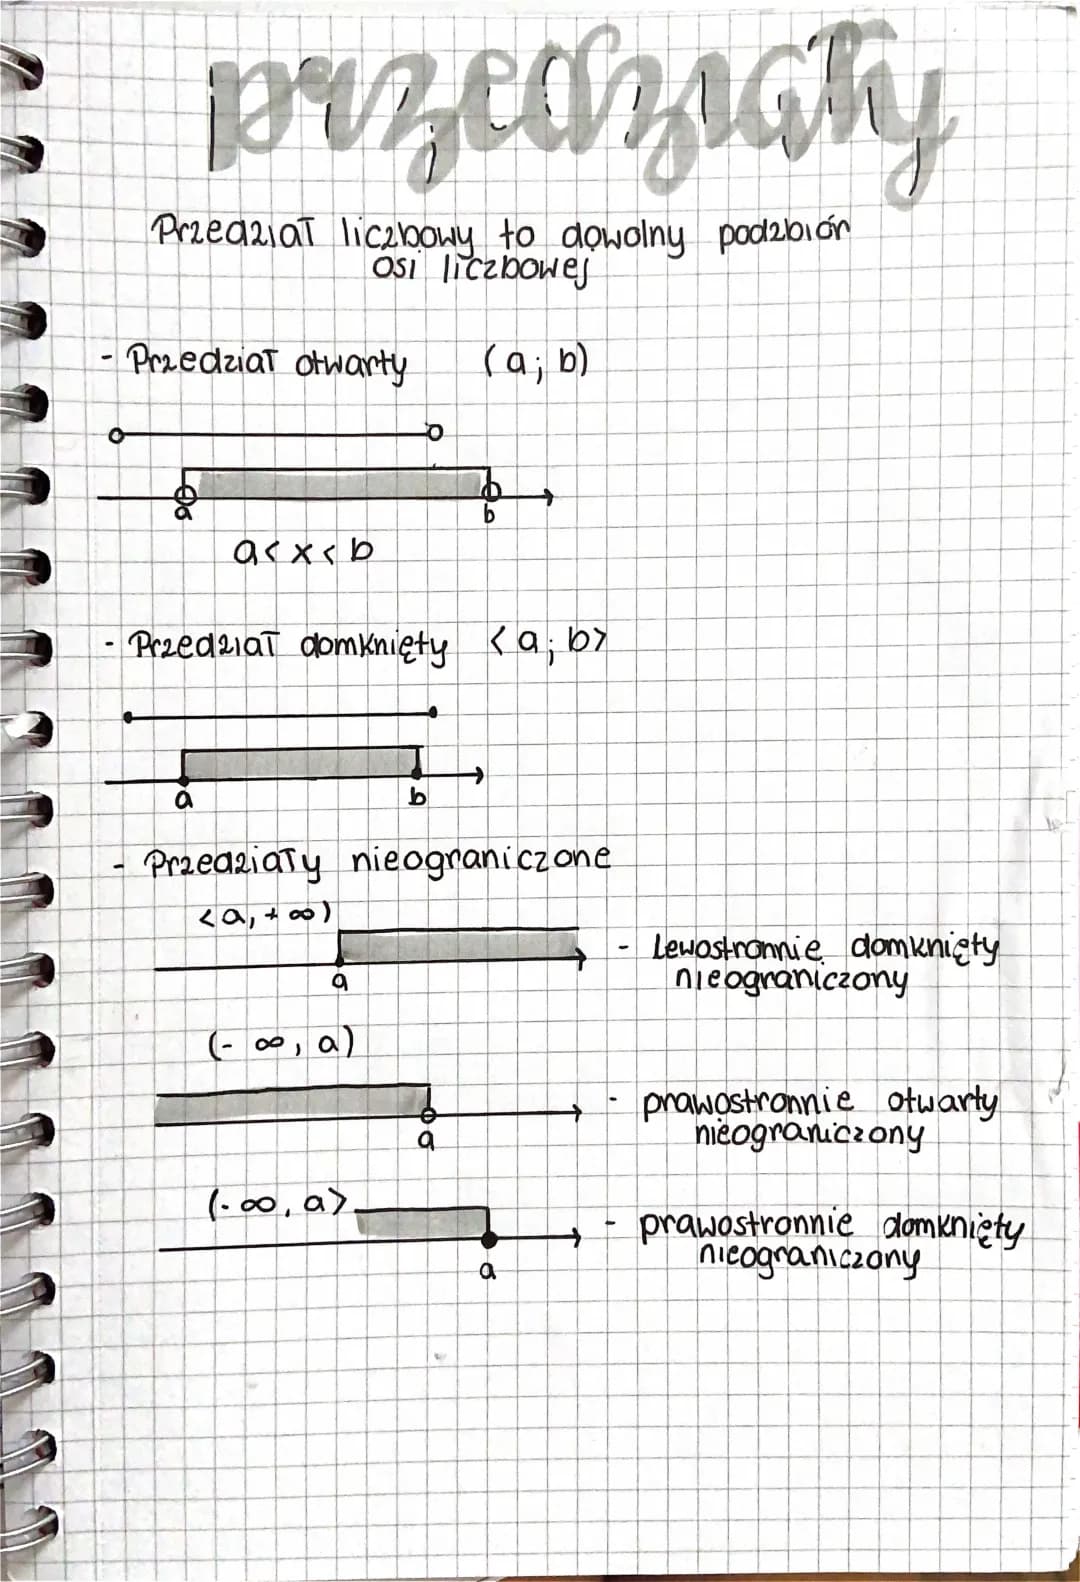 przedziały
Przedział liczbowy to dowolny podzbiór
osi liczbowej
- Przedział otwarty (a; b)
a b
a < x < b
- Przedział domknięty <a; b>
a b
- Przedziały nieograniczone
<a, + ∞)
- Lewostronnie domknięty
nieograniczony
a
(- ∞, a)
- prawostronnie otwarty
nieograniczony
a
(- ∞, a>
- prawostronnie domknięty
nieograniczony
a